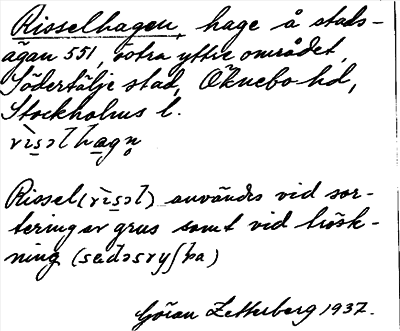 Risselhagen, hage å stads-
ägan 551, östra yttre området,
Södertälje stad, Öknebo hd,
Stockholms l.
rìs̱əlhagn̥
Rissel (rìs̱əl) användes vid sor-
tering av grus samt vid trösk-
ning
Göran Zetterberg 1937.